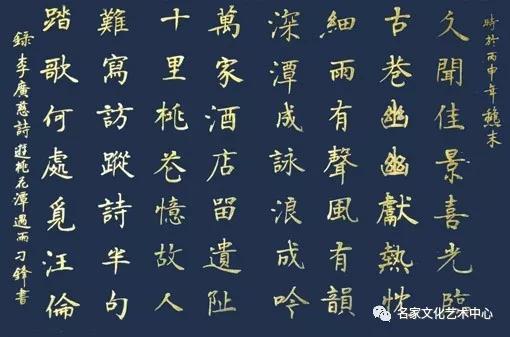 時於丙申年龝末
久聞佳景喜光臨
古巷幽幽獻熱忱
細雨有聲風有韻
深潭成詠浪成吟
萬家酒店留遺阯
十里桃花憶故人
難寫訪蹤詩半句
踏歌何處覓汪倫
錄李廣慈詩遊桃花潭遇雨刁鋒書
名家文化艺术中心